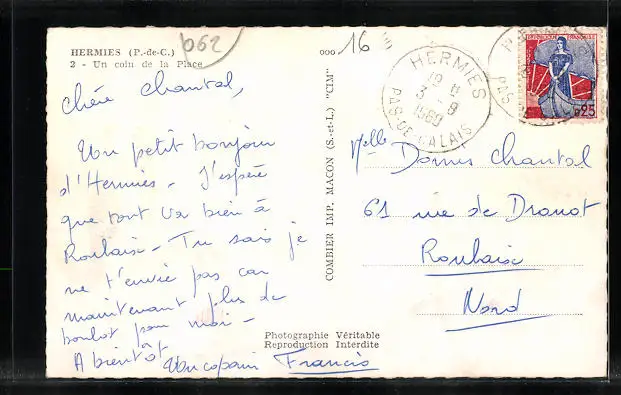 HERMIES (P.-de-C.)
2 - Un coin de la Place
062
000 16
HERMIES
19 H
3 - 8
1960
PAS-DE-CALAIS
REPUBLIQUE FRANCAISE
0,25
Chère Chantal,
Un petit bonjour
d'Hermies - J'espère
que tout va bien à
Roubaix - Tu sais je
ne t'envie pas car
maintenant plus de
boulot pour moi -
A bientôt
Un copain Francis
COMBIER IMP. MACON (S.-et-L.) "CIM"
Photographie Véritable
Reproduction Interdite
Melle Chantal
61 rue de Drouot
Roubaix
Nord